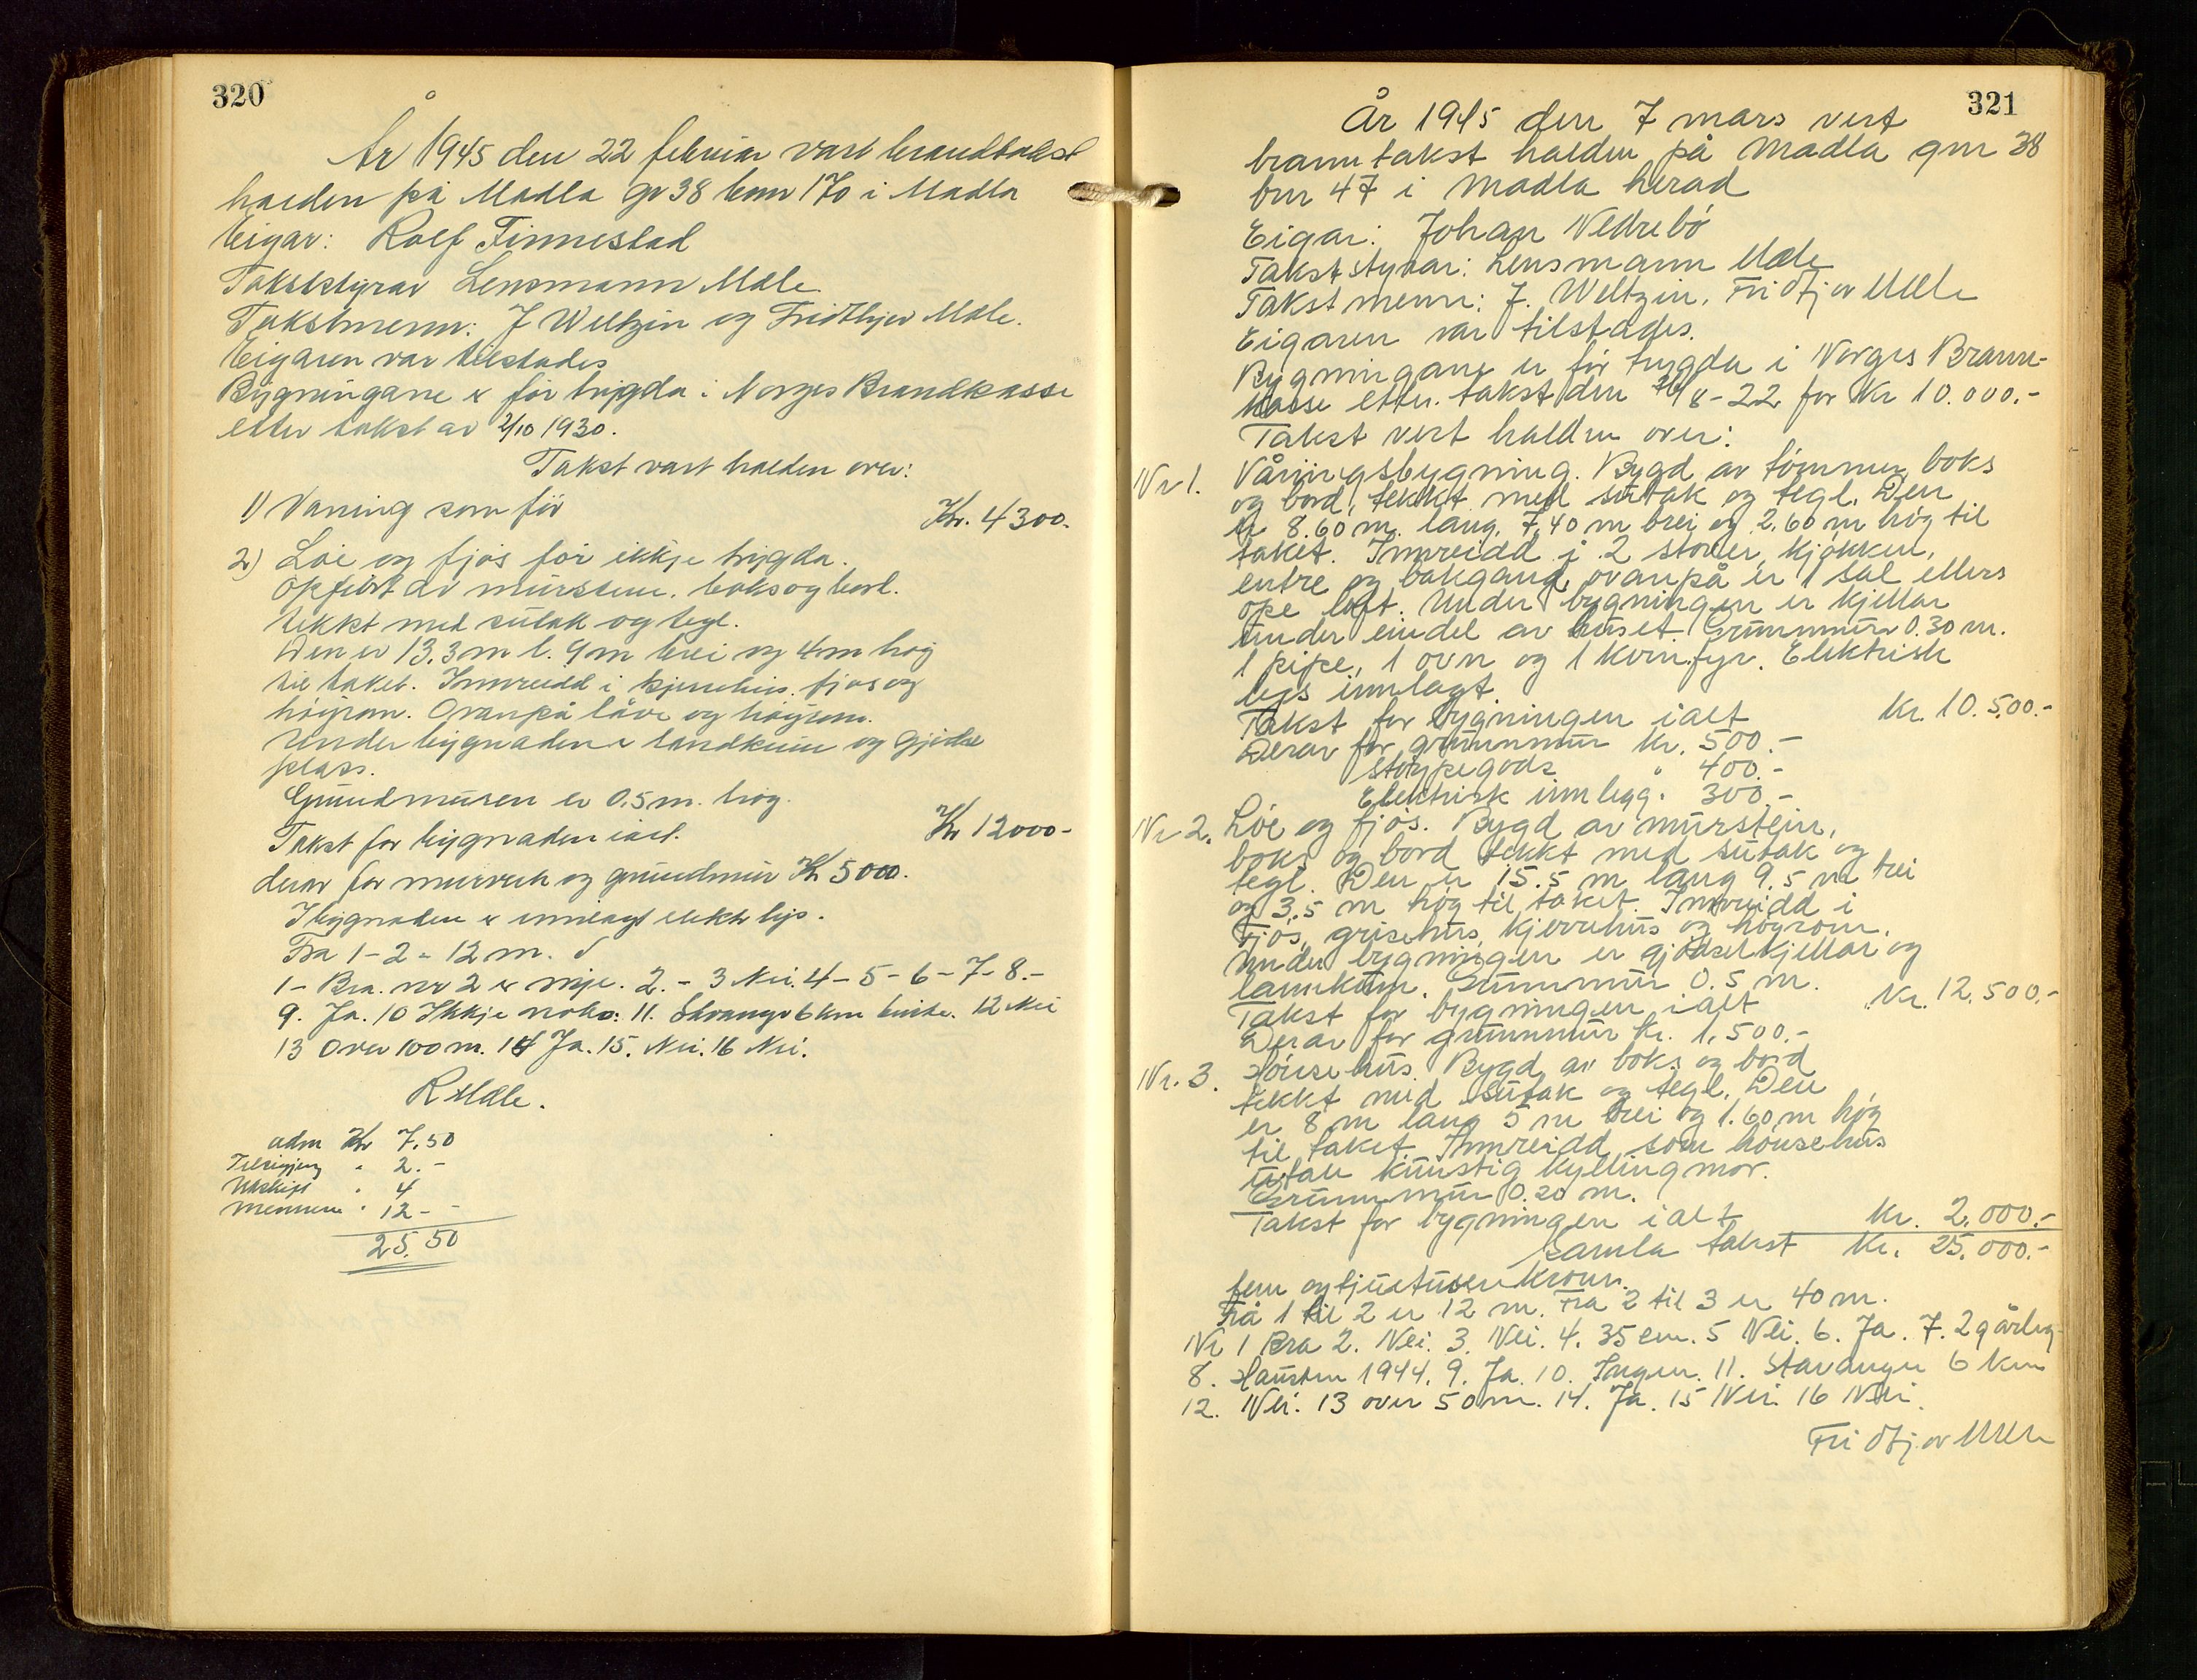 320
År 1945 den 22 februar vart brandtakst
halden på Madla gr 38 bnr 170 i Madla
Eigar: Rolf Finnestad
Takststyrar Lensmann Mæle
Takstmenn: J Weltzin og Fridthjov Mæle.
Eigaren var tilstades
Bygningane er før trygda i Norges Brandkasse
etter takst av 2/10 1930.
Takst vart halden over:
1) Vaning som før Kr. 4300.
2) Løe og fjøs før ikkje trygda.
Opført av mursten. boks og bord.
tekkt med sutak og tegl.
Den er 13,3 m l. 9 m brei og 4 m høg
til taket. Innreidd i kjerrehus. fjøs og
høyrom. Ovanpå låve og høyrom.
Under bygnaden er landkum og gjødsel
plass.
Grundmuren er 0,5 m. høg.
Takst for bygnaden ialt. Kr 12000-
derav for murverk og grundmur Kr 5000.
I bygnaden er innlagt elektr lys.
Fra 1-2 = 12 m.
1- Bra. nr 2 er nye. 2.- 3 Nei. 4-5-6-7-8.-
9. Ja. 10 Ikkje noko. 11. Stavanger 6 km 12 Nei
13 Over 100 m. 14 Ja. 15. Nei. 16 Nei.
R Mæle.
adm Kr 7,50
Tilsigjing " 2.-
Utskift " 4
Mennene " 12--
25,50
321
År 1945 den 7 mars vert
branntakst halden på Madla gnr 38
bnr 47 i Madla herad
Eigar: Johan Vedrebø
Takststyrar: Lensmann Mæle
Takstmenn: J. Weltzin, Fridtjov Mæle
Eigaren var tilstades.
Bygningane er før trygda i Norges Brann-
kasse etter takst den /8-22 for Kr 10.000.-
Takst vert halden over:
Nr 1. Våningsbygning. Bygd av tømmer, boks
og bord, tekkt med sutak og tegl. Den
er 8.60 m. lang, 7,40 m brei og 2.60 m høg til
taket. Innreidd i 2 stover, kjøkken,
entre og bakgang, ovanpå er 1 sal ellers
ope loft. Under bygningen er kjellar
under eindel av huset. Grunnmur 0.30 m.
1 pipe, 1 ovn og 1 komfyr. Elektrisk
lys innlagt.
Takst for bygningen ialt Kr. 10.500.-
Derav for grunnmur Kr. 500.-
støypegods " 400.-
Elektrisk innlegg " 300.-
Nr 2. Løe og fjøs. Bygd av murstein,
boks og bord tekkt med sutak og
tegl. Den er 15.5 m lang 9.5 m brei
og 3.5 m høg til taket. Innreidd i
fjøs, grisehus, kjerrehus og høyrom.
Under bygningen er gjødselkjellar og
lannkum. Grunnmur 0.5 m.
Takst for bygningen ialt Kr. 12.500.-
Derav for grunnmur Kr. 1.500.-
Nr. 3. Hønsehus. Bygd av boks og bord
tekkt med sutak og tegl. Den
er 8 m lang 5 m brei og 1.60 m høg
til taket. Innreidd som hønsehus
utan kunstig kyllingmor.
Grunnmur 0.20 m.
Takst for bygningen ialt Kr. 2.000.-
Samla takst Kr. 25.000.-
fem og tjuetusen kroner.
Frå 1 til 2 er 12 m. Fra 2 til 3 er 40 m.
Nr 1 Bra 2. Nei. 3. Nei. 4. 35 cm. 5 Nei. 6. Ja. 7. 2 g årleg
8. Hausten 1944. 9. Ja. 10. Ingen. 11. Stavanger 6 km
12. Nei. 13 over 50 m. 14. Ja. 15 Nei. 16 Nei.
Fridtjov Mæle